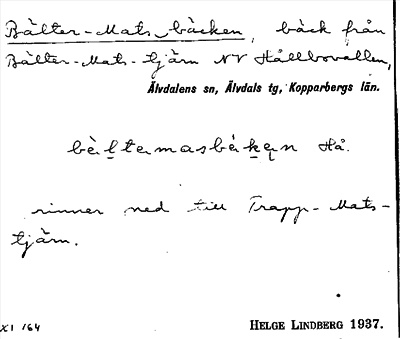 Bälter-Mats-bäcken, bäck från
Bälter-Mats-tjärn NV Hållbovallen,
Älvdalens sn, Älvdals tg, Kopparbergs län.
bèl̠temasbèk̠ęn Hå.
rinner ned till Trapp-Mats-
tjärn.
XI 164
HELGE LINDBERG 1937.